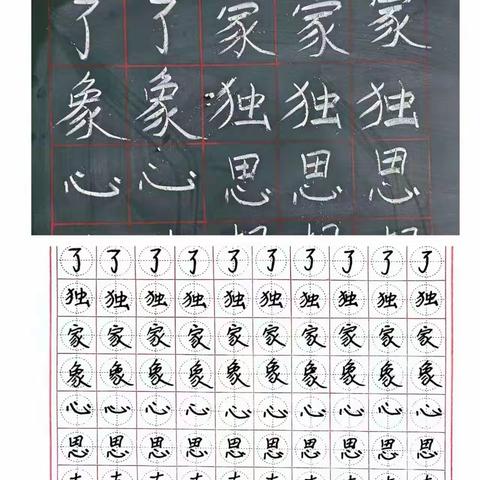 了了家家家
象象独独独
心心思思思
了了了了了了了了了了
独独独独独独独独独独
家家家家家家家家家家
象象象象象象象象象象
心心心心心心心心心心
思思思思思思思思思思